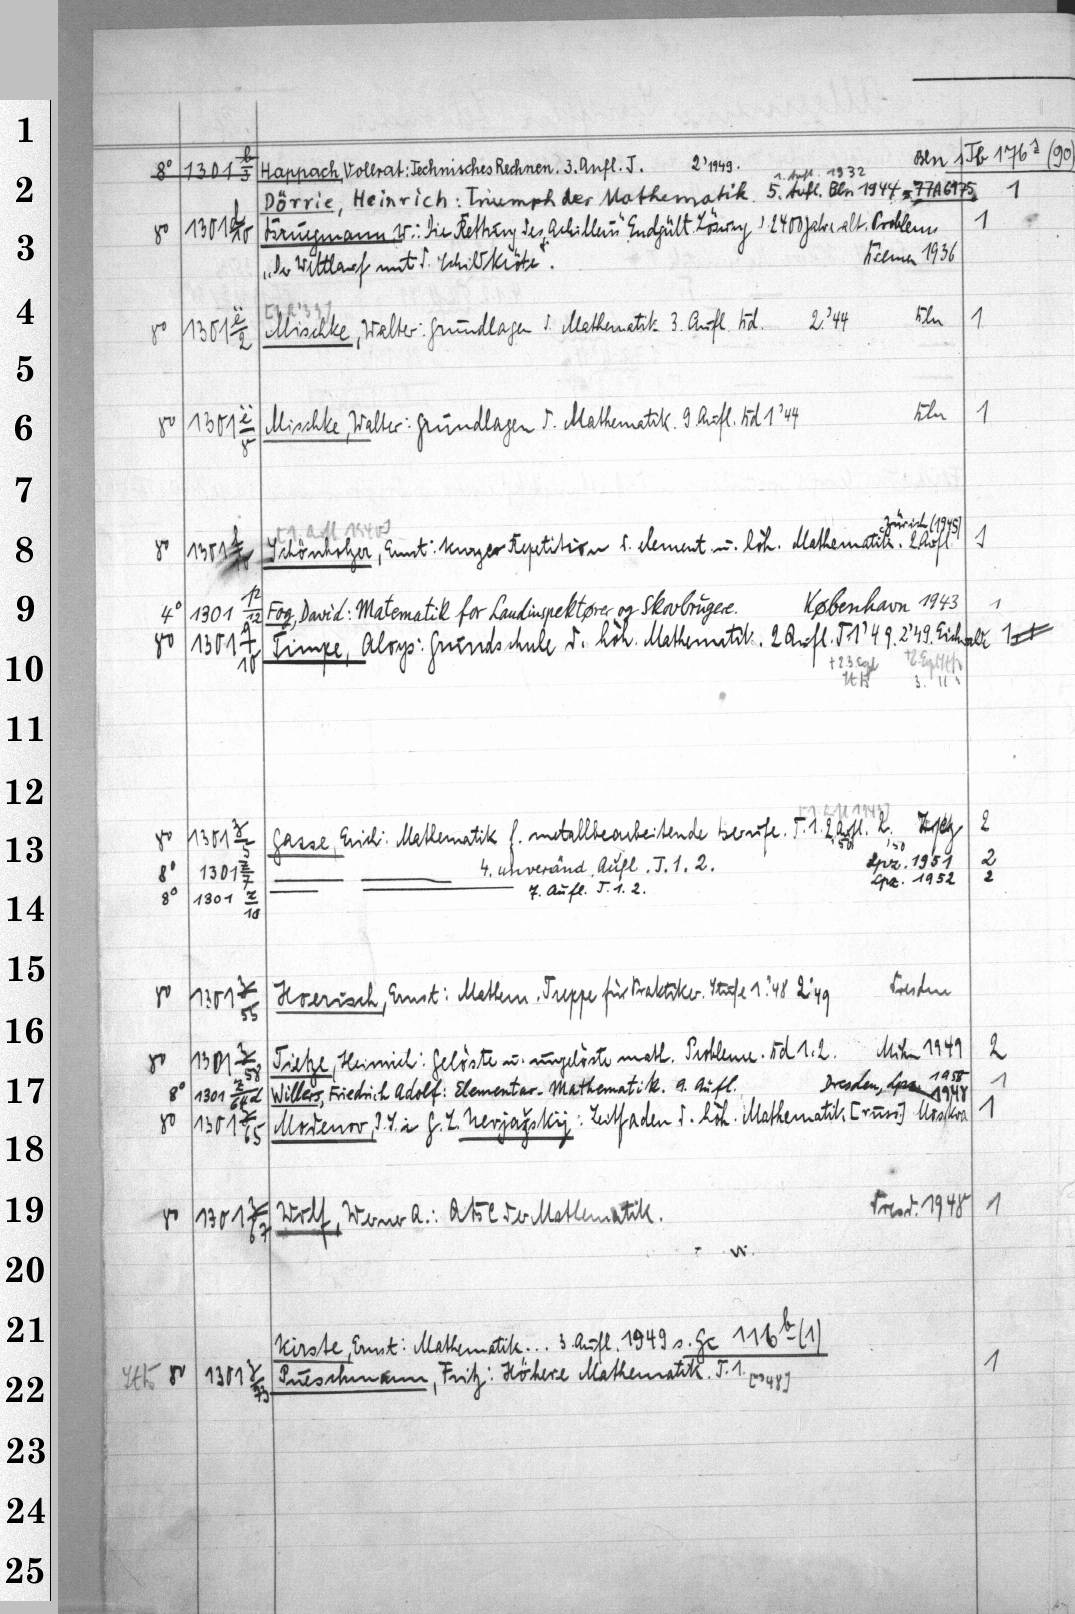 1
8° 1301 b/3 Happach, Vollrat: Technisches Rechnen. 3. Aufl. I. 2'1949. Bln 1 Jb 176 (90)
1. Aufl. 1932
2
Dörrie, Heinrich: Triumph der Mathematik 5. Aufl. Bln 1944 = 77A6975 1
8° 1301 d/10 Brugmann, W.: Die Rettung des „Achilleus" Endgült. Lösung 2400jahre alt. Problems 1
3
„Der Wettlauf mit d. Schildkröte". Bremen 1936
4
8° 1301 e/2 Mischke, Walter: Grundlagen d. Mathematik 3. Aufl. Bd. 2.'44 Bln 1
5
6
8° 1301 e/8 Mischke, Walter: Grundlagen d. Mathematik. 9. Aufl. Bd 1'44 Bln 1
7
[1. Aufl 1940] Zürich (1945)
8
8° 1301 Schönholzer, Ernst: Kurze Repetition d. element. u. höh. Mathematik. 2. Aufl. 1
9
4° 1301 p/12 Fog, David: Matematik for Landinspektører og Skovbrugere. København 1943 1
8° 1301 q/10 Timpe, Aloys: Grundschule d. höh. Mathematik. 2. Aufl. T 1'49. 2'49. Eichwalde 1
10
11
12
8° 1301 z/3 Gasse, Erich: Mathematik f. metallbearbeitende Berufe. T. 1. 2. Aufl. 2. Lpzg 2
13
'50 '50
8° 1301 z/7 4. unveränd. Aufl. T. 1. 2. Lpz. 1951 2
8° 1301 z/10 7. Aufl. T. 1. 2. Lpz. 1952 2
14
15
8° 1301 z/55 Hoerisch, Ernst: Mathem. Treppe für Praktiker. Stufe 1.'48 2'49 Dresden
16
8° 1301 z/58 Tietze, Heinrich: Gelöste u. ungelöste math. Probleme. Bd 1. 2. Mchn 1949 2
17
8° 1301 z/64d Willers, Friedrich Adolf: Elementar-Mathematik. 9. Aufl. Dresden, Lpz. 1958 1948 1
8° 1301 z/65 Modenov, P. S. i G. L. Nevjažskij: Leitfaden d. höh. Mathematik [russ] Moskva 1
18
19
8° 1301 z/67 Wolf, Werner A.: ABC der Mathematik. Dresd. 1948 1
20
21
Kirste, Ernst: Mathematik... 3. Aufl. 1949 s. Gc 116 b (1)
22
8° 1301 z/73 Pueschmann, Fritz: Höhere Mathematik. T. 1. ['48] 1
23
24
25